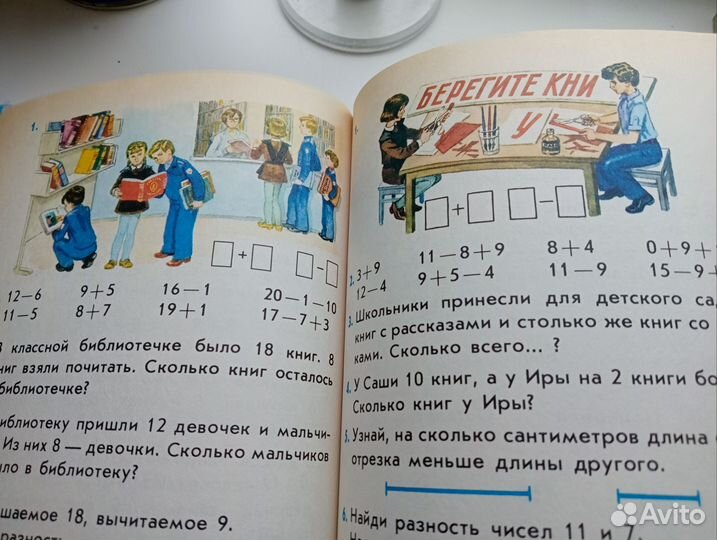 1.
□+□ □−□
12−6 9+5 16−1 20−1−10
11−5 8+7 19+1 17−7+3
В классной библиотечке было 18 книг. 8
книг взяли почитать. Сколько книг осталось
библиотечке?
библиотеку пришли 12 девочек и мальчи-
Из них 8 — девочки. Сколько мальчиков
ло в библиотеку?
шаемое 18, вычитаемое 9.
разность
БЕРЕГИТЕ КНИ
У
□+□ □−□
2. 3+9 11−8+9 8+4 0+9+
12−4 9+5−4 11−9 15−9+
3. Школьники принесли для детского са
книг с рассказами и столько же книг со
ками. Сколько всего... ?
4. У Саши 10 книг, а у Иры на 2 книги бо
Сколько книг у Иры?
5. Узнай, на сколько сантиметров длина
отрезка меньше длины другого.
6. Найди разность чисел 11 и 7.
Avito